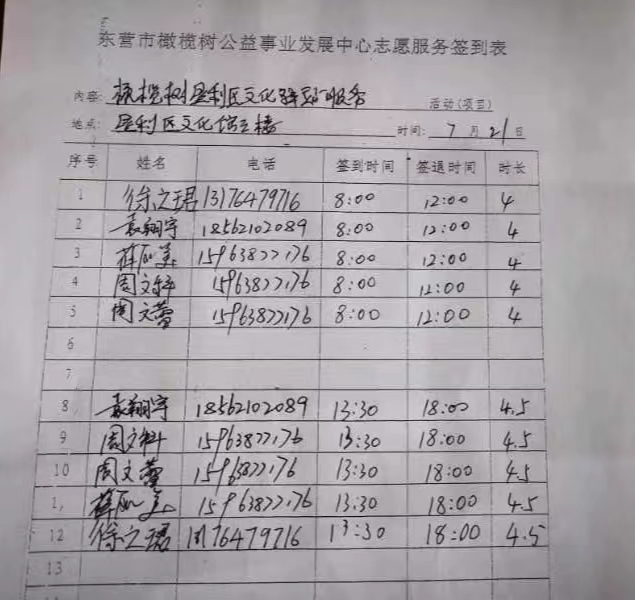 东营市橄榄树公益事业发展中心志愿服务签到表
内容: 橄榄树垦利区文化驿站服务 活动(项目)
地点: 垦利区文化馆三楼 时间: 7 月 21 日
序号 姓名 电话 签到时间 签退时间 时长
1 徐立珺 13176479716 8:00 12:00 4
2 袁翔宇 18562102089 8:00 12:00 4
3 薛丽美 15963877176 8:00 12:00 4
4 周文科 15963877176 8:00 12:00 4
5 周文蕾 15963877176 8:00 12:00 4
6
7
8 袁翔宇 18562102089 13:30 18:00 4.5
9 周文科 15963877176 13:30 18:00 4.5
10 周文蕾 15963877176 13:30 18:00 4.5
1, 薛丽美 15963877176 13:30 18:00 4.5
12 徐立珺 13176479716 13:30 18:00 4.5
13